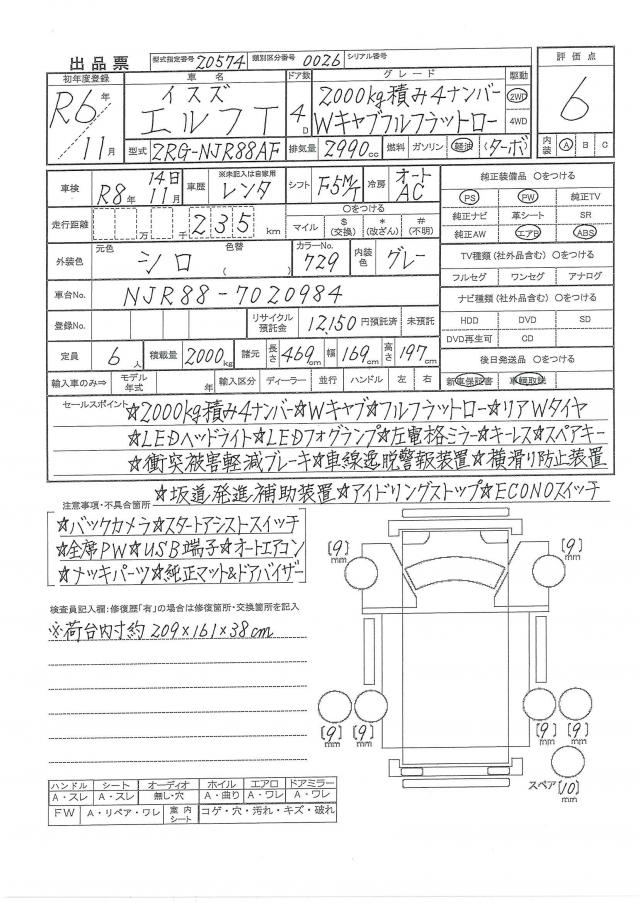 出品票 型式指定番号 20574 類別区分番号 0026 シリアル番号
評価点
6
内装 A B C
初年度登録 車名 ドア数 グレード 駆動
R6年 イスズ 2000kg積み4ナンバー 2WD
11月 エルフT 4D Wキャブフルフラットロー 4WD
型式 2RG-NJR88AF 排気量 2990cc 燃料 ガソリン 軽油 (ターボ)
車検 R8年 14日 11月 車歴 ※未記入は自家用 レンタ シフト F-5M/T 冷房 オートAC
走行距離 万 千 235 km
〇をつける
マイル $(交換) *(改ざん) #(不明)
外装色 元色 シロ 色替 ( ) カラーNo. 729 内装色 グレー
車台No. NJR88-7020984
登録No. リサイクル預託金 12,150 円預託済 未預託
定員 6人 積載量 2000kg 諸元 長さ 469cm 幅 169cm 高さ 197cm
輸入車のみ⇒ モデル年式 年 輸入区分 ディーラー 並行 ハンドル 左 右
純正装備品 〇をつける
PS PW 純正TV
純正ナビ 革シート SR
純正AW エアB ABS
TV種類(社外品含む) 〇をつける
フルセグ ワンセグ アナログ
ナビ種類(社外品含む) 〇をつける
HDD DVD SD
DVD再生可 CD
後日発送品 〇をつける
新車保証書 車輌取説
セールスポイント ☆2000kg積み4ナンバー☆Wキャブ☆フルフラットロー☆リアWタイヤ
☆LEDヘッドライト☆LEDフォグランプ☆左電格ミラー☆キーレス☆スペアキー
☆衝突被害軽減ブレーキ☆車線逸脱警報装置☆横滑り防止装置
☆坂道発進補助装置☆アイドリングストップ☆ECONOスイッチ
注意事項・不具合箇所
☆バックカメラ☆スタートアシストスイッチ
☆全席PW☆USB端子☆オートエアコン
☆メッキパーツ☆純正マット&ドアバイザー
検査員記入欄:修復歴「有」の場合は修復箇所・交換箇所を記入
※荷台内寸約209×161×38cm
[9]mm [9]mm
[9]mm [9]mm [9]mm [9]mm
スペア [10]mm
ハンドル シート オーディオ ホイル エアロ ドアミラー
A・スレ A・スレ 無し・穴 A・曲り A・ワレ A・ワレ
FW A・リペア・ワレ 室内シート コゲ・穴・汚れ・キズ・破れ